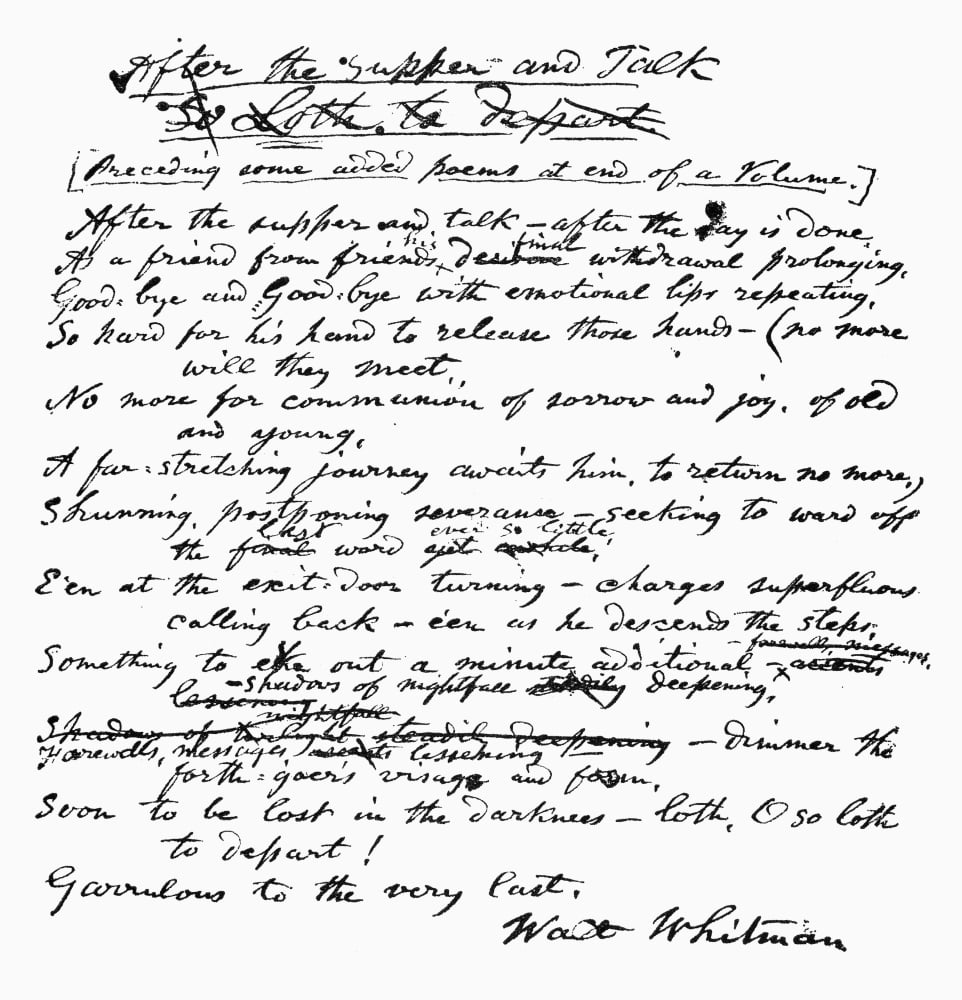 After the Supper and Talk
So Loth to depart.
[Preceding some added poems at end of a Volume.]
After the supper and talk – after the day is done,
his final
As a friend from friends, withdrawal prolonging,
Good-bye and Good-bye with emotional lips repeating,
So hard for his hand to release those hands – (no more
will they meet,
No more for communion of sorrow and joy, of old
and young,
A far-stretching journey awaits him, to return no more,)
Shunning, postponing severance – seeking to ward off
last ever so little
the final word yet awhile,
E'en at the exit-door turning – charges superfluous
calling back – e'en as he descends the steps,
– farewells, messages,
Something to eke out a minute additional – accents
– shadows of nightfall steadily deepening,
lessening
nightfall
Shadows of twilight steadily deepening – dimmer the
Farewells, messages lessening
forth-goer's visage and form,
Soon to be lost in the darkness – loth, O so loth
to depart!
Garrulous to the very last.
Walt Whitman